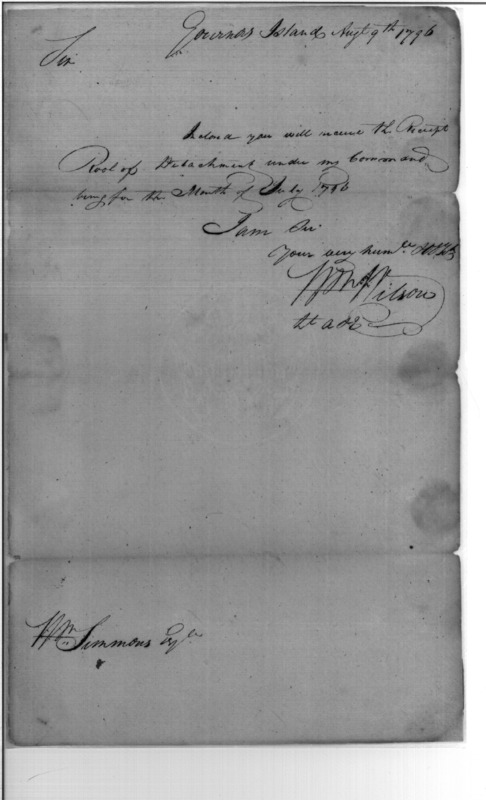 Governors Island Augt 9th 1796
Sir
Inclosed you will receive the Receipt
Roolof Detachment under my Command,
being for the Month of July 1796
I am Sir
Your very humle
Wm Wilson
Lt A&E
Wm Simmons Esqr